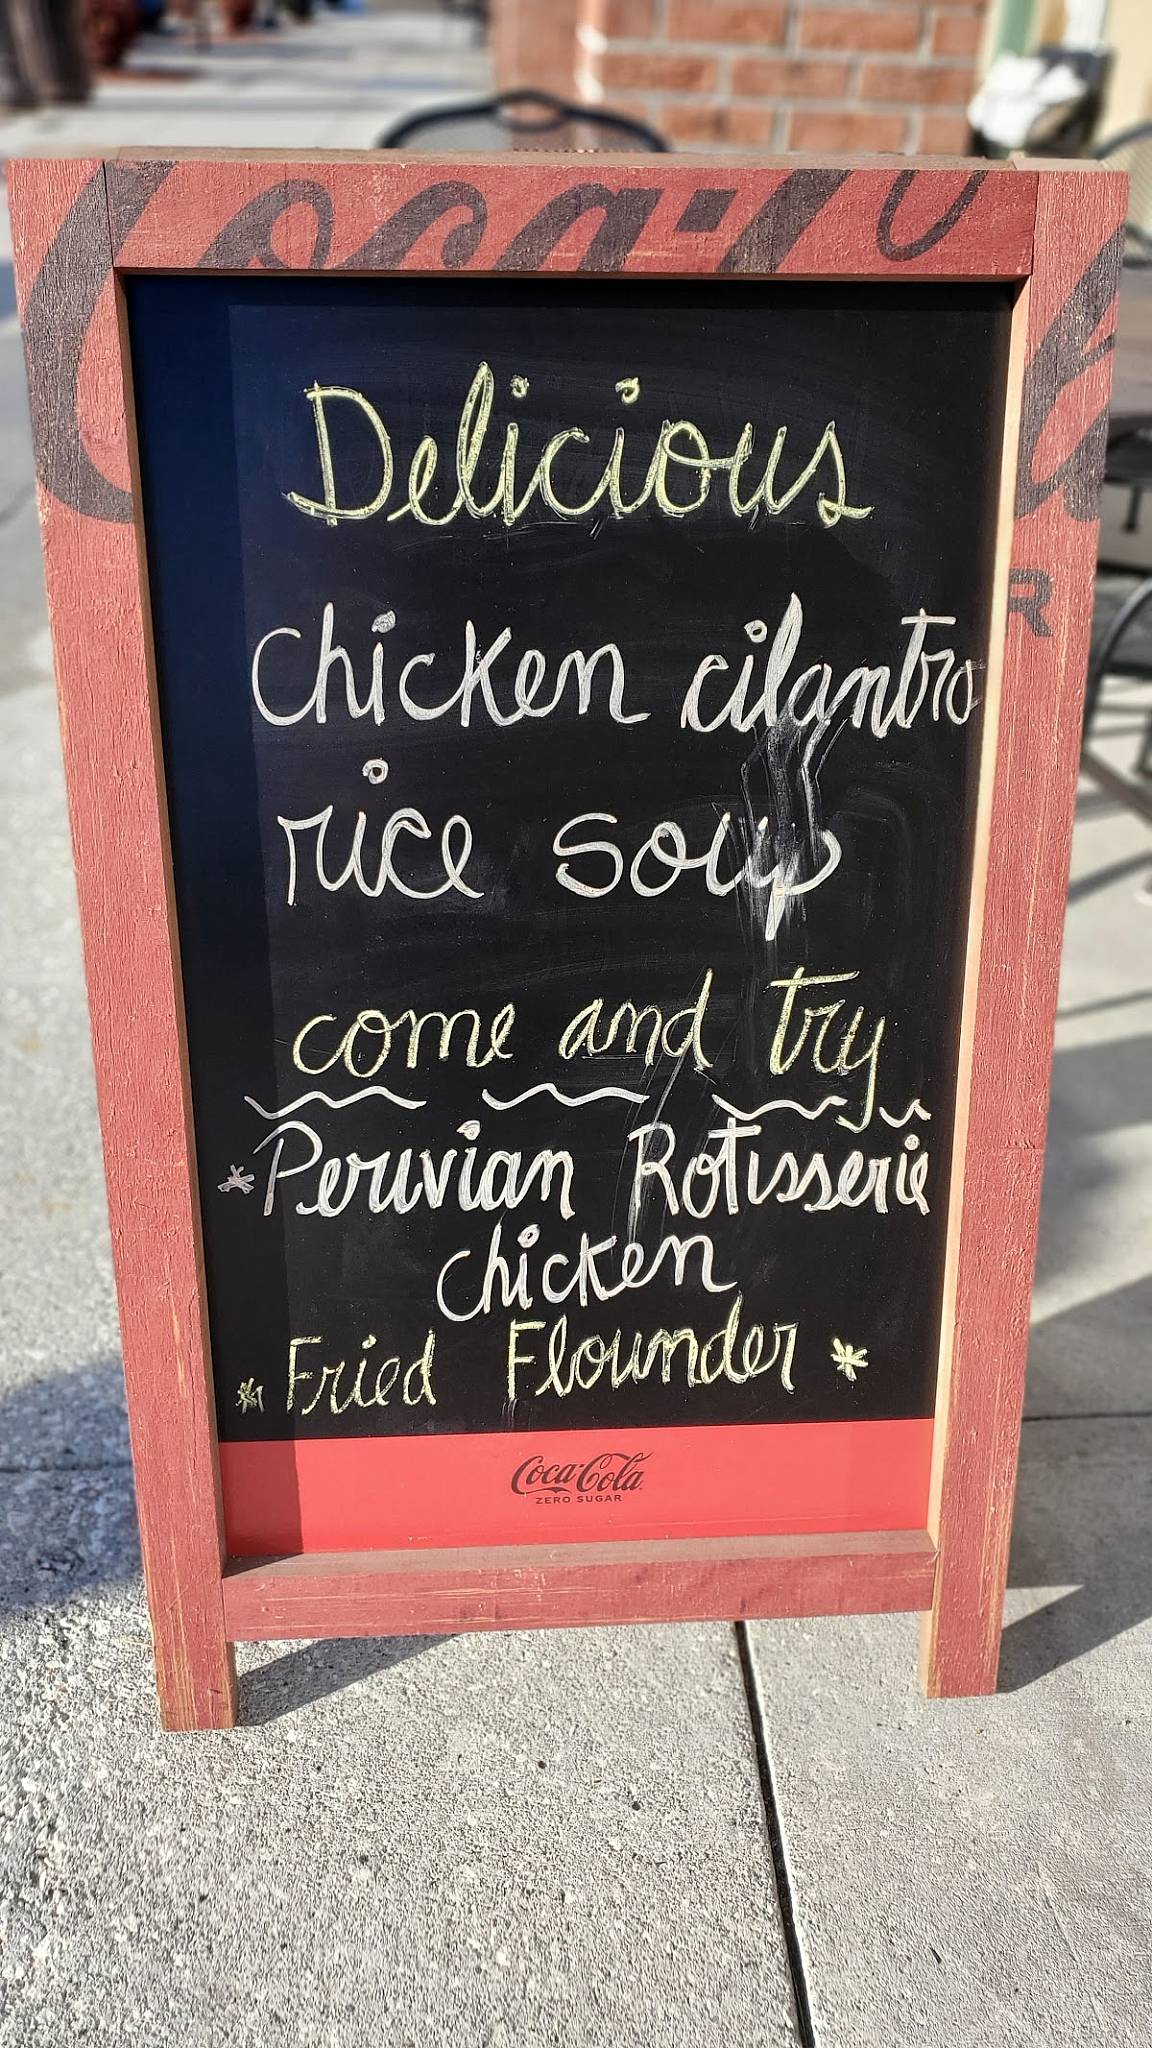 Coca-Cola
R
Delicious
Chicken cilantro
rice soup
come and try
* Peruvian Rotisserie
chicken
* Fried Flounder *
Coca-Cola
ZERO SUGAR